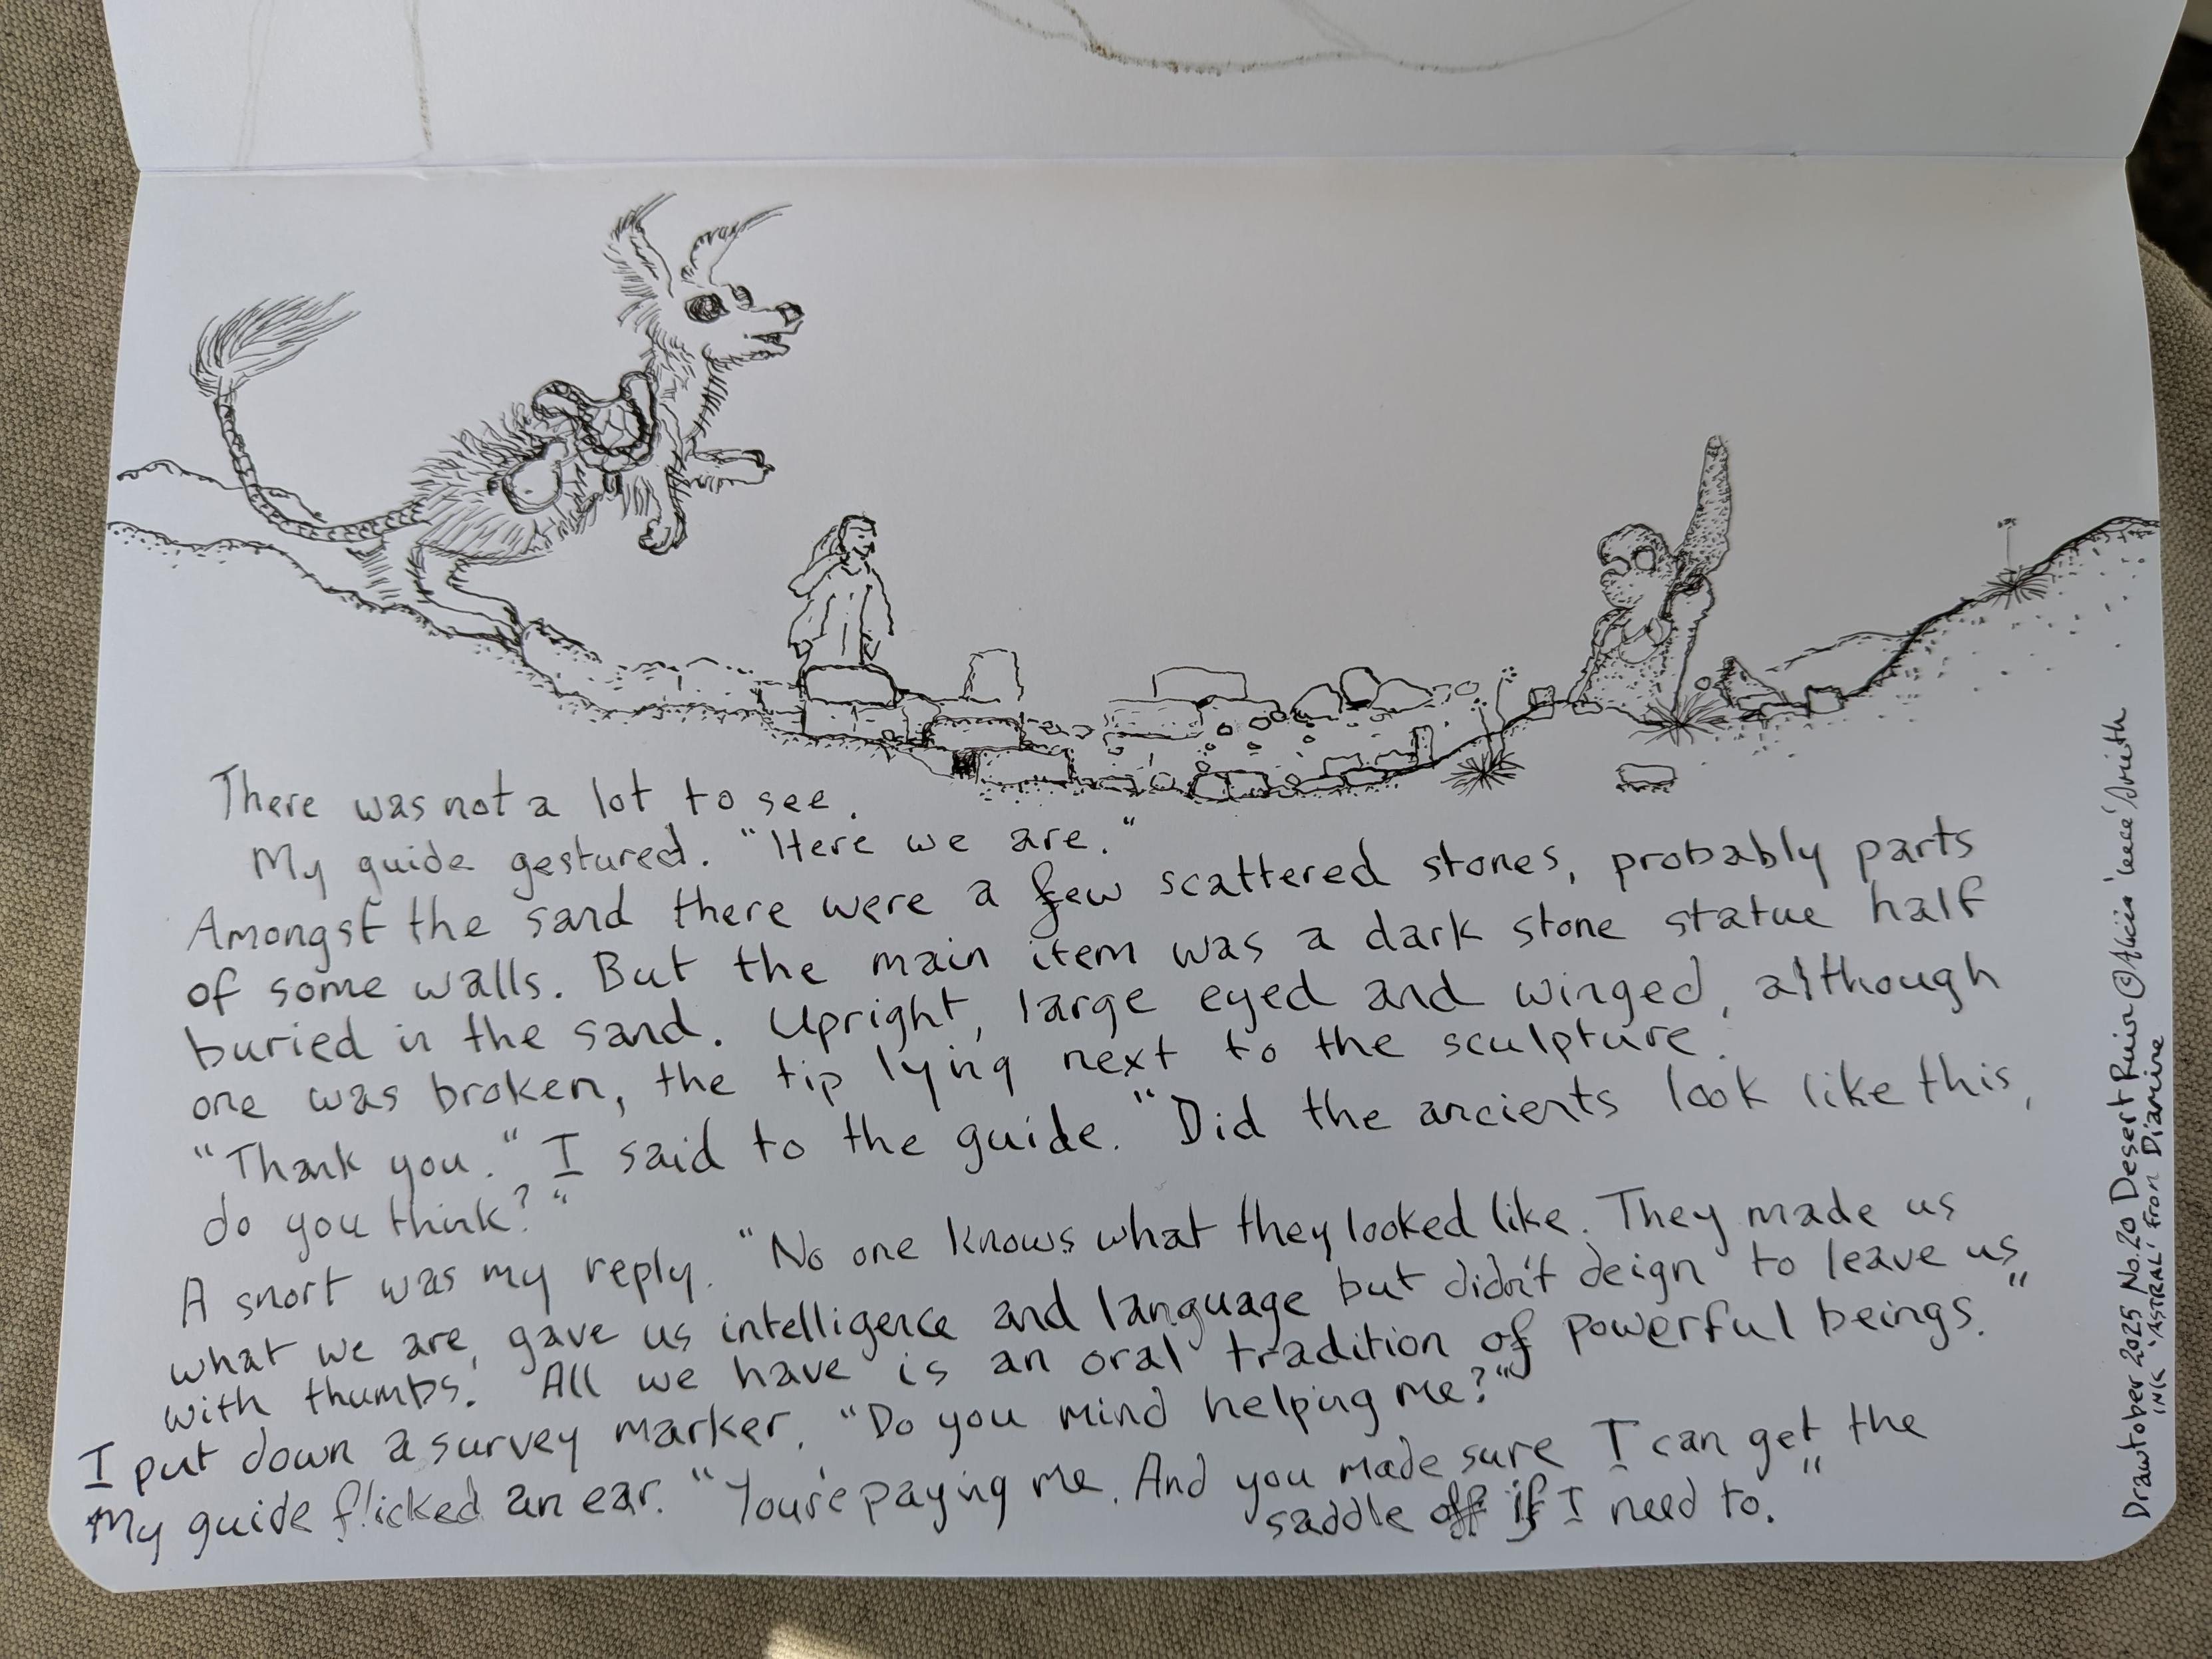 There was not a lot to see.
My guide gestured. "Here we are."
Amongst the sand there were a few scattered stones, probably parts
of some walls. But the main item was a dark stone statue half
buried in the sand. Upright, large eyed and winged, although
one was broken, the tip lying next to the sculpture.
"Thank you." I said to the guide. "Did the ancients look like this,
do you think?"
A snort was my reply. "No one knows what they looked like. They made us
what we are, gave us intelligence and language but didn't deign to leave us
with thumbs. All we have is an oral tradition of powerful beings."
I put down a survey marker. "Do you mind helping me?"
My guide flicked an ear. "You're paying me. And you made sure I can get the
saddle off if I need to."
Drawtober 2025 No.20 Desert Ruin © Alicia Smith
INK 'ASTRAL' from Diamine